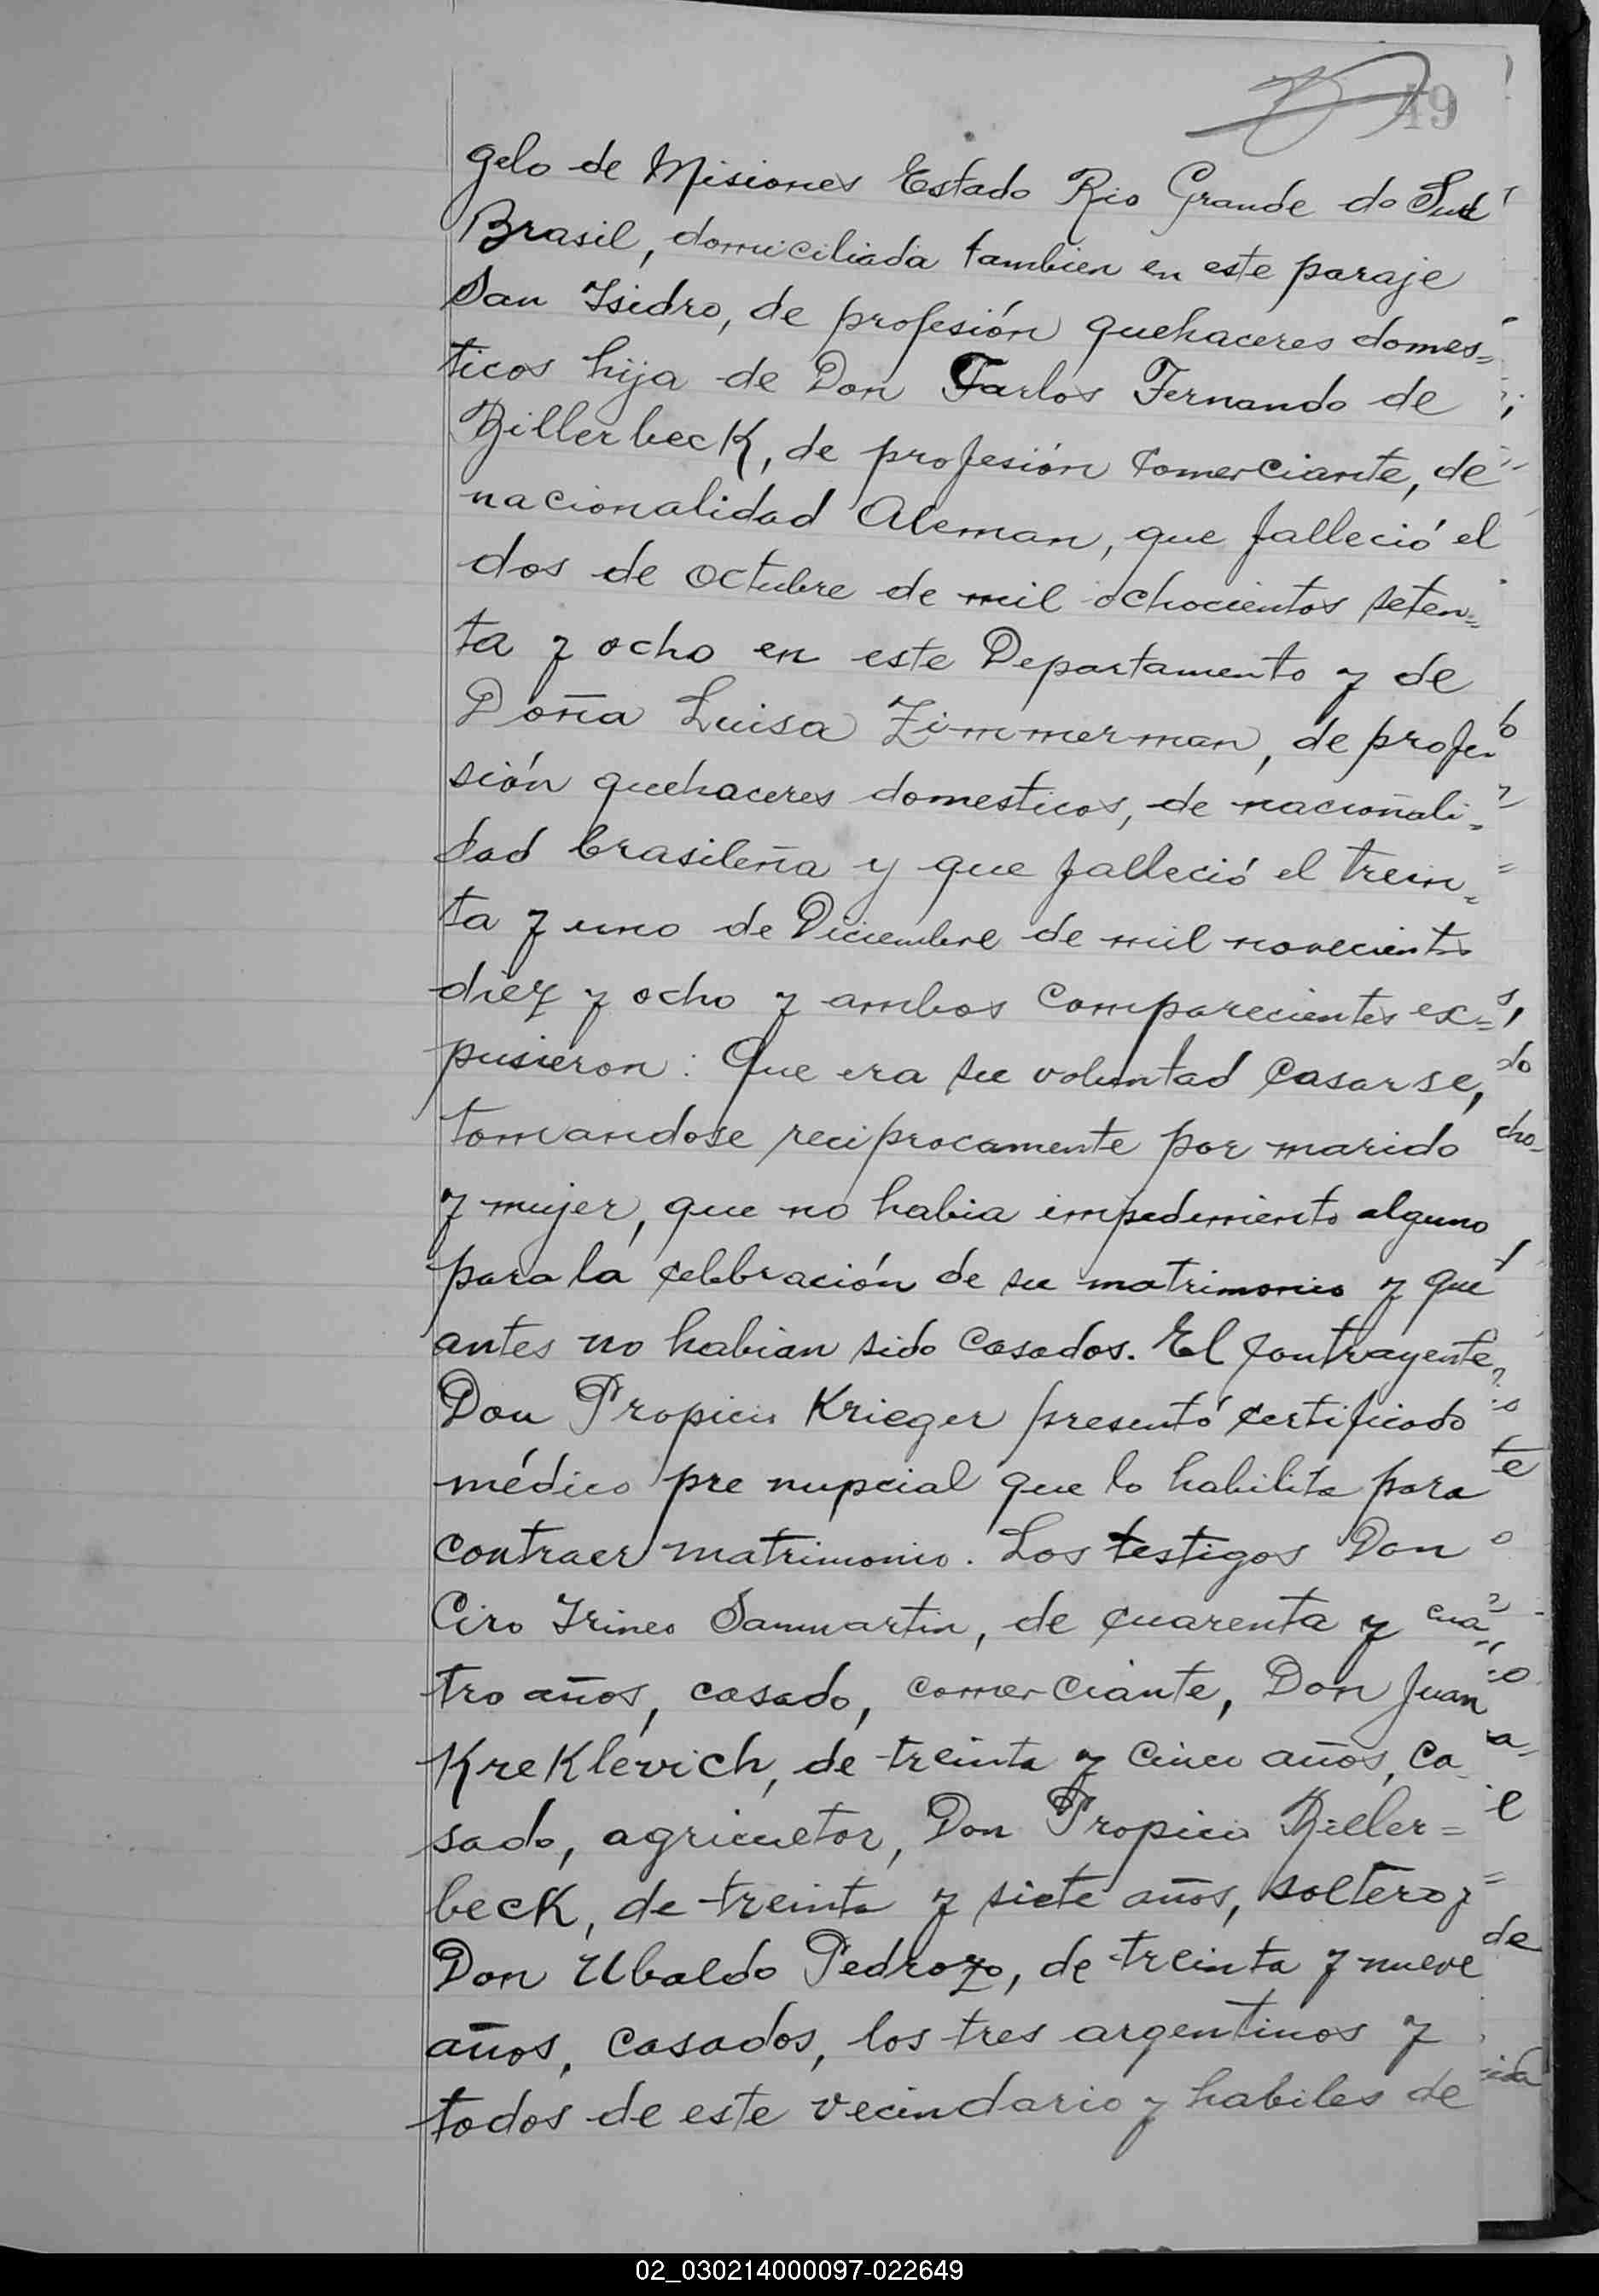 49
gelo de Misiones Estado Rio Grande do Sud
Brasil, domiciliada tambien en este paraje
San Isidro, de profesión quehaceres domes=
ticos hija de Don Carlos Fernando de
Billerbeck, de profesión comerciante, de
nacionalidad Aleman, que falleció el
dos de octubre de mil ochocientos seten=
ta y ocho en este Departamento y de
Doña Luisa Zimmerman, de profe
sión quehaceres domesticos, de nacionali=
dad brasileña y que falleció el trein=
ta y uno de Diciembre de mil novecientos
diez y ocho y ambos comparecientes ex=
pusieron: Que era su voluntad casarse,
tomandose reciprocamente por marido
y mujer, que no habia impedimiento alguno
para la celebración de su matrimonio y que
antes no habian sido casados. El contrayente
Don Propicio Krieger presentó certificado
médico pre nupcial que lo habilita para
contraer matrimonio. Los testigos Don
Ciro Irineo Sanmartin, de cuarenta y cua=
tro años, casado, comerciante, Don Juan
Kreklevich, de treinta y cinco años, ca
sado, agricultor, Don Propicio Biller=
beck, de treinta y siete años, soltero y
Don Ubaldo Pedrozo, de treinta y nueve
años, casados, los tres argentinos y
todos de este vecindario y habiles de
02_030214000097-022649